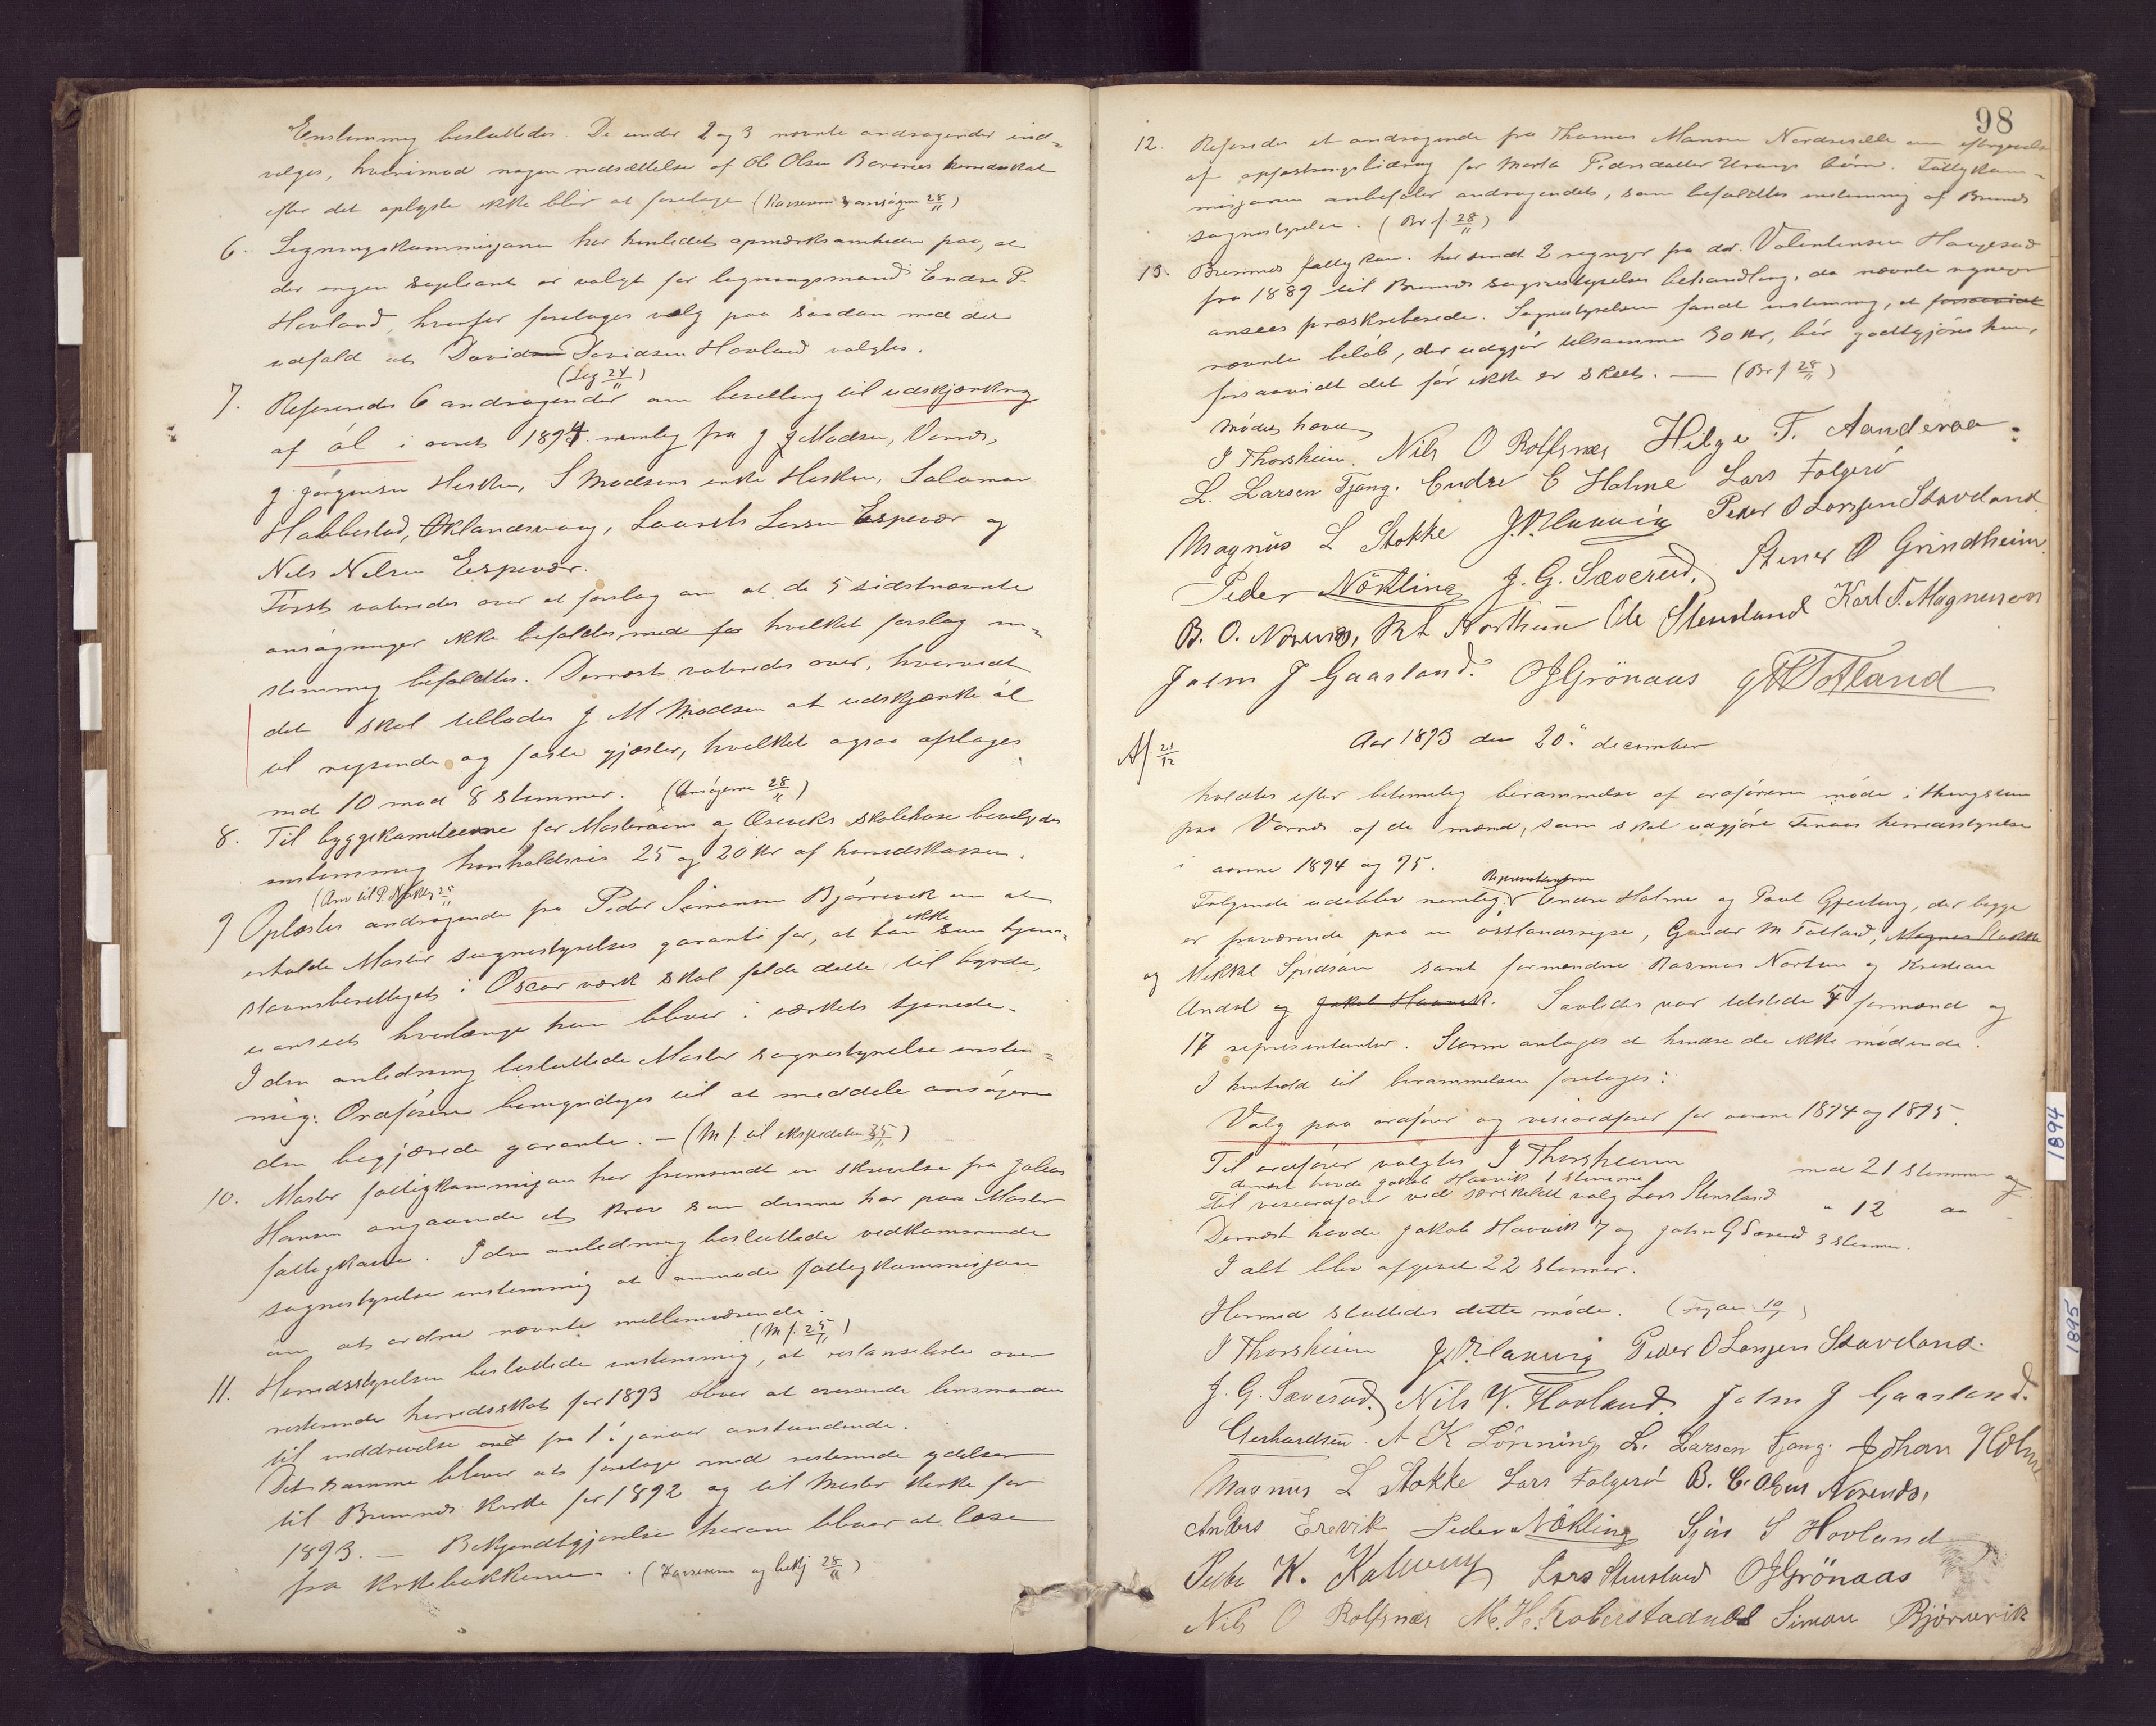 Enstemmig besluttedes. De under 2 og 3 nævnte andragender ind=
vilges, hvorimod nogen nedsættelse af Ole Olsen herredsskat
efter det oplyste ikke blir at foretage (Kasseren & ansögern 28/11)
6. Ligningskommisjonen har henledet opmærksomheden paa, at
der ingen supleant er valgt for ligningsmand Endre P.
Hovland, hvorfor foretages valg paa saadan med det
udfald at David Davidsen Hovland valgtes.
(Lig 24/11)
7. Refereredes 6 andragender om bevilling til udskjænkning
af öl i aaret 1894 nemlig fra J J Madsen, Vornes,
J Jörgensen Hisken, S Madsens enke Hisken, Salamon
Habbestad, Oklandsvaag, Laurits Larsen Espevær og
Nils Nilsen Espevær.
Först voteredes over et forslag om at de 5 sidstnævnte
ansögninger ikke befaldes, hvilket forslag en=
stemmig befaldtes. Dernæst voteredes over, hvorvidt
det skal tillades J M Madsen at udskjænke öl
til reisende og faste gjæster, hvilket ogsaa afslages
med 10 mod 8 stemmer. (Ansögerne 28/11)
8. Til byggekomiteerne for Mosteröens og Eseviks skolehuse bevilgedes
enstemmig henholdsvis 25 og 20 kr af herredskassen.
(Anv til P. Nökling 25/11)
9 Oplæstes andragende fra Peder Simonsen Björnevik om at
erholde Moster sognestyrelses garanti for, at han ikke som hjem-
stavnsberettiget i Oscar værk skal falde dette til byrde,
uanseet hvorlænge han bliver i værkets tjeneste.
I den anledning besluttede Moster sognestyrelse enstem=
mig: Ordföreren bemyndiges til at meddele ansögeren
den begjærede garanti. — (M f. til ekspedition 25/11)
10. Moster fattigkommisjon har fremsendt en skrivelse fra Johan
Hansen angaaende et krav som denne har paa Moster
fattigkasse. I den anledning besluttede vedkommende
sognestyrelse enstemmig at anmode fattigkommisjonen
om at ordne nævnte mellemværende.
(M f. 25/11)
11. Herredsstyrelsen besluttede enstemmig, at restanseliste over
resterende herredsskat for 1893 bliver at oversende lensmanden
til inddrivelse fra 1' januar anstundende.
Det samme bliver at foretage med resterende ydelser
til Bremnes kirke for 1892 og til Moster kirke for
1893. — Bekjendtgjörelse herom bliver at læse
fra kirkebakkerne. (Kasseren og bekj 28/11)
98
12. Refereredes et andragende fra Thomas Monsen om eftergivelse
af opfostringsbidrag for Marta Pedersdatter Urangs börn. Fattigkom-
misjonen anbefaler andragendet, som befaldtes enstemmig af Bremnes
sognestyrelse. (Br f. 28/11)
13. Bremnes fattigkom. har sendt 2 regninger fra dr. Valentinsen Haugesund
fra 1889 til Bremnes sognestyrelses behandling, da nævnte regninger
ansees præskriberede. Sognestyrelsen fandt enstemmig, at forsaavidt
nævnte belöb, der udgjör tilsammen 30 kr, bör godtgjöres ham,
forsaavidt det för ikke er skeet. — (Br f 28/11)
Mödet hævet
J Thorsheim. Nils O Rolfsnes Helge T. Aanderaa.
L. Larsen Tjong. Endre E Holme Lars Folgerö
Magnus L Stokke J. Haavig Peder O Larsen Stavland
Peder Nökling J. G. Sæverud. Stener O Grindheim.
B. O. Norenes, R L Northun Ole Stensland Karl S. Magnussen
John J Gaasland. O J Grönaas G M Totland
Af 21/12
Aar 1893 den 20. december
holdtes efter betimelig berammelse af ordföreren möde i thingstuen
paa Vornes af de mænd, som skal udgjöre Finaas herredsstyrelse
i aarene 1894 og 95.
Representanterne
Fölgende udeblev nemlig Endre Holme og Poul Gjerting, der begge
er fraværende paa en östlandsreise, Gunder M Totland, Magnus Stokke
og Mikkel Spidsöen samt formændene Rasmus Nortun og Kristian
Andal og Jakob Haavik. Saaledes var tilstede 5 formænd og
17 representanter. Storm antages at hindre de ikke mödende.
I henhold til berammelsen foretages:
Valg paa ordförer og viseordförer for aarene 1894 og 1895.
Til ordförer valgtes J Thorsheim med 21 stemmer og
dernæst havde Jakob Haavik 1 stemme
Til viseordförer ved særskildt valg Lars Stensland " 12 "
Dernæst havde Jakob Haavik 7 og John G Sæverud 3 stemmer.
I alt blev afgivet 22 stemmer.
Hermed sluttedes dette möde.
J Thorsheim J. Haavig Peder O Larsen Stavland.
J. G. Sæverud. Nils V. Hovland John J Gaasland.
Gerhardsen. A K Lönning L. Larsen Tjong. Johan Holme
Magnus L Stokke Lars Folgerö B. C. Olsen Norenes,
Anders Erevik Peder Nökling Sjur S Hovland
Peder K. Kallevig Lars Stensland O J Grönaas
Nils O Rolfsnes M. H. Koberstadnes Simon Björnevik
1894
1895